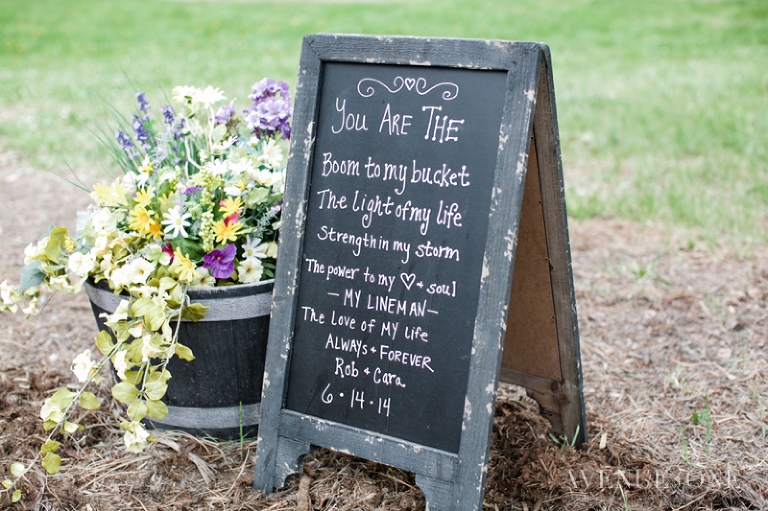 You Are The
Boom to my bucket
The light of my life
Strength in my storm
The power to my ♡ + soul
— MY LINEMAN —
The love of My life
ALWAYS + FOREVER
Rob + Cara
6 • 14 • 14
AVENUE ONE